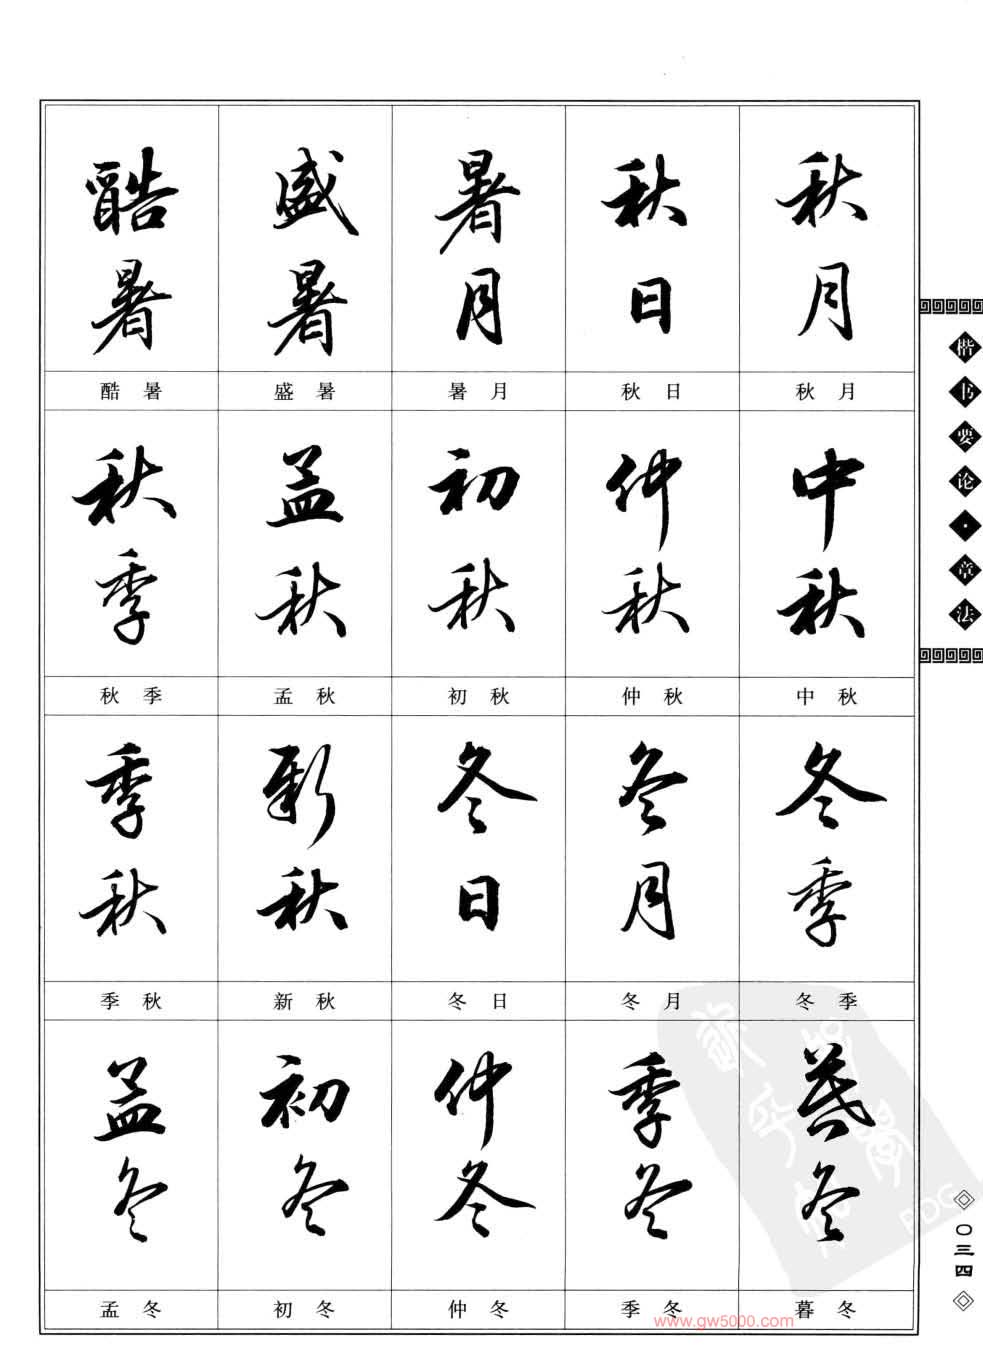 酷暑 盛暑 暑月 秋日 秋月
酷暑 盛暑 暑月 秋日 秋月
秋季 孟秋 初秋 仲秋 中秋
秋季 孟秋 初秋 仲秋 中秋
季秋 新秋 冬日 冬月 冬季
季秋 新秋 冬日 冬月 冬季
孟冬 初冬 仲冬 季冬 暮冬
孟冬 初冬 仲冬 季冬 暮冬
楷书要论·章法
〇三四
PDG
www.gw5000.com